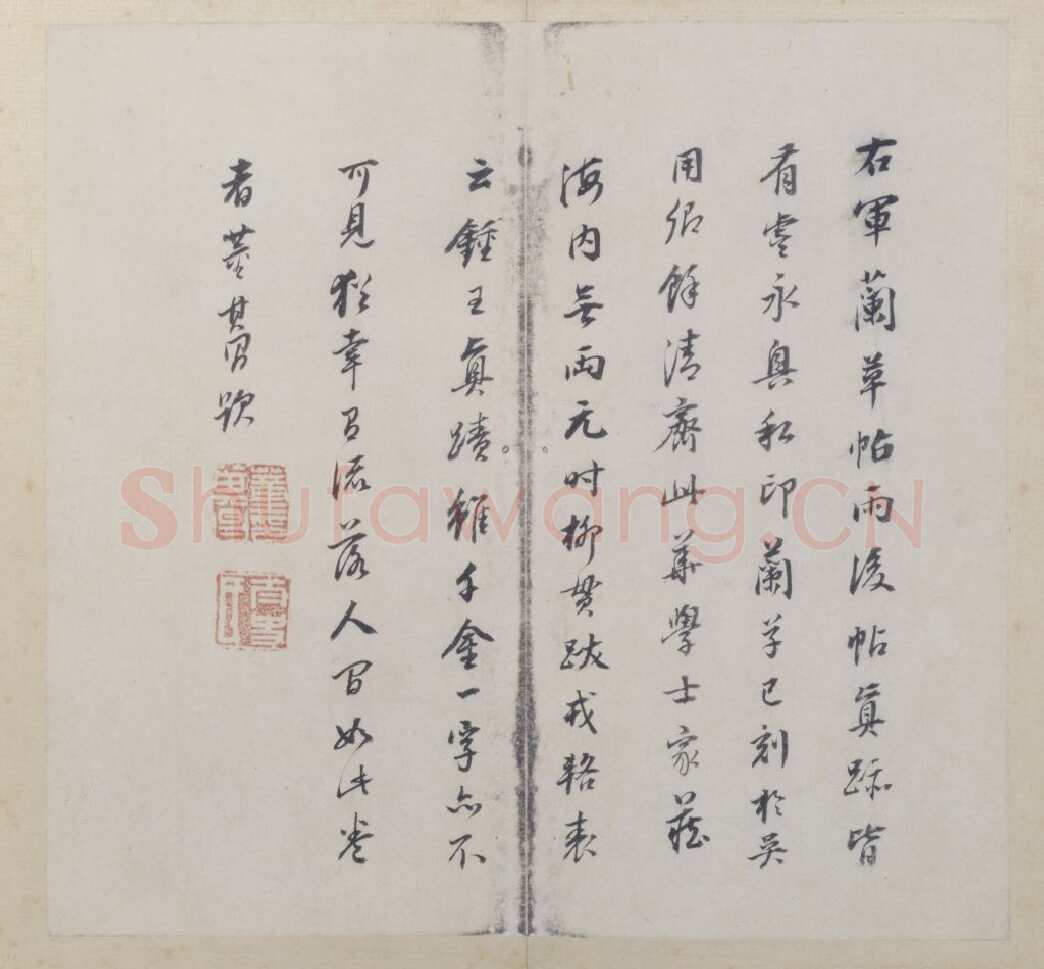 右軍蘭草帖雨後帖真跡皆
有虛永興私印蘭草已刻於吳
用卿餘清齋此華學士家藏
海內無兩元時柳貫跋戎輅表
云鍾王真蹟雖千金一字亦不
可見猶幸有流落人間如此卷
者董其昌題
Shufawang.CN